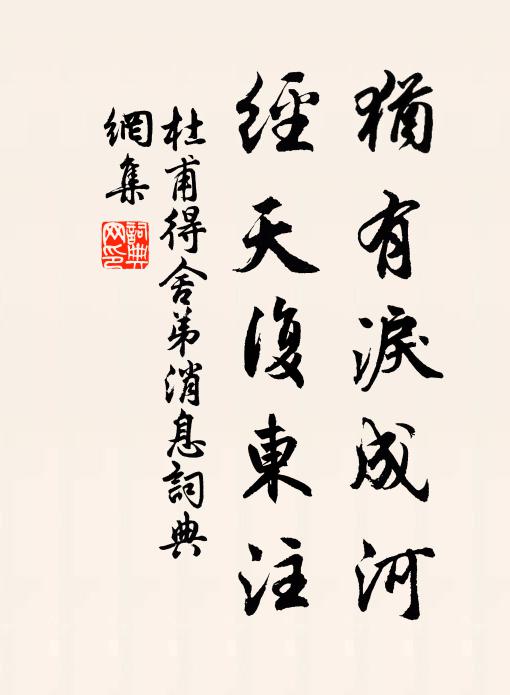 猶有淚成河
經天復東注
杜甫得舍弟消息詞典
網集
詞典
网印